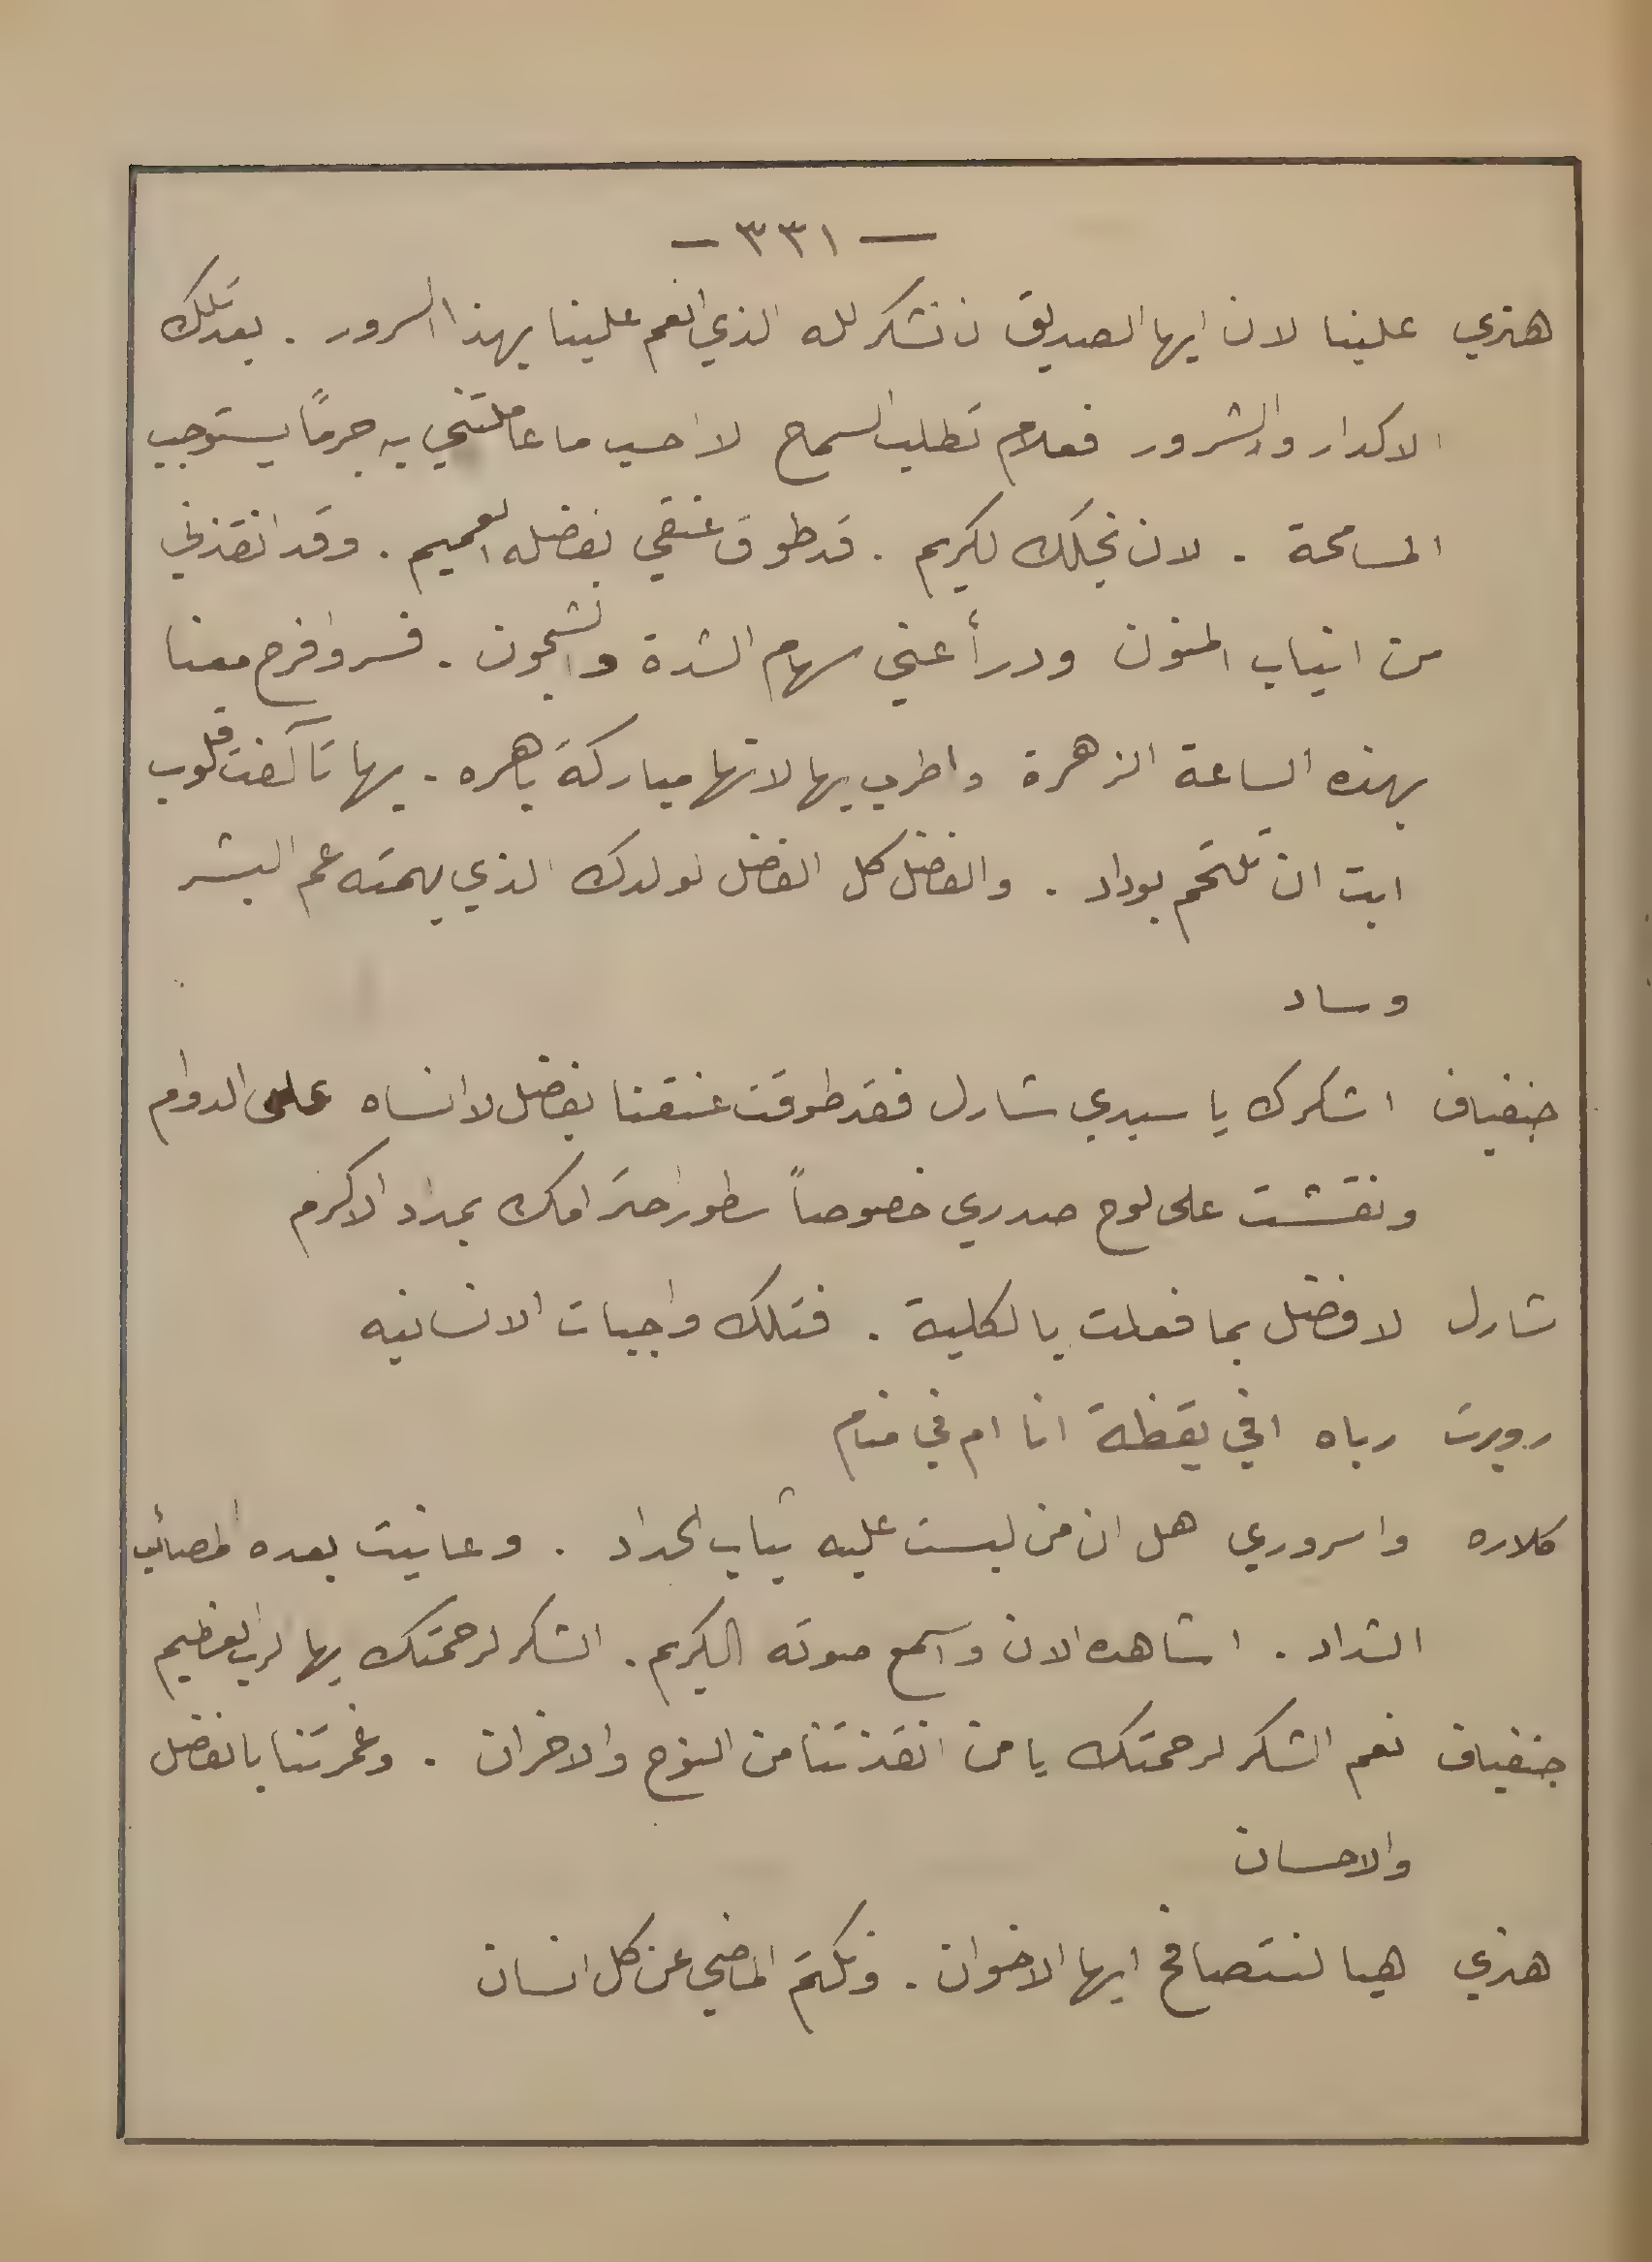 — ٣٣١ —
هنري علينا لان ايها الصديق ن نشكر لله الذي انعم علينا بهذا السرور . بعد تلك
الاكدار والشرور فعلام تطلب السماح لا احسب ما عاملتني به جرمًا يستوجب
المسامحة . لان نجلك لكريم . قد طوق عنقي بفضله العميم . وقد انقذني
من انياب المنون ودرأ عني سهام الشدة والشجون . فسر وافرح معنا
بهذه الساعة الزهرة واطرب بها لانها مباركة باهره . بها تآلفت قلوب
ابت ان تلتحم بوداد . والفضل كل الفضل لولدك الذي بهمته عم البشر
وساد
جنفياف اشكرك يا سيدي شارل فقد طوقت عنقنا بفضل لا انساه على الدوام
ونقشت على لوح صدري خصوصاً سطور احترامك بمداد الاكرم
شارل لا فضل بما فعلت بالكلية . فتلك واجبات الانسانيه
روبرت رباه افي يقظة انا ام في منام
كلاره واسروري هل ان من لبست عليه ثياب الحداد . وعانيت بعده المصائب
الشداد . اشاهده الان واسمع صوته الكريم . الشكر لرحمتك بها لرب العظيم
جنفياف نعم الشكر لرحمتك يا من انقذتنا من النوح والاحزان . وغمرتنا بالفضل
والاحسان
هنري هيا لنتصافح ايها الاخوان . ونكتم الماضي عن كل انسان